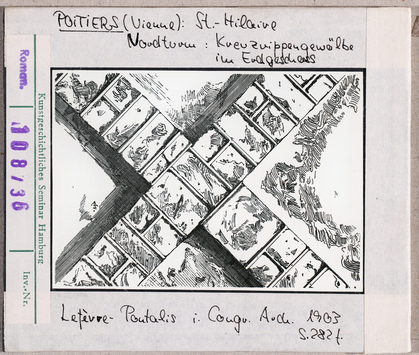 POITIERS (Vienne): St.-Hilaire
Nordturm: Kreuzrippengewölbe
im Erdgeschoss
Roman.
108/36
Kunstgeschichtliches Seminar Hamburg
Inv.-Nr.
Lefèvre-Pontalis i. Congr. Arch. 1903
S. 282 f.